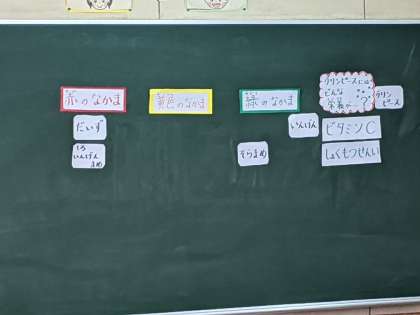 赤のなかま
黄色のなかま
緑のなかま
グリンピースには
どんな
栄養が
グリン
ピース
だいず
いんげん
ビタミンC
しろ
いんげん
まめ
そらまめ
しょくもつせんい